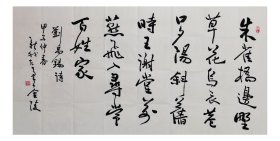 朱雀橋邊野
草花烏衣巷
口夕陽斜舊
時王謝堂前
燕飛入尋常
百姓家
劉禹錫詩
仲春
金陵